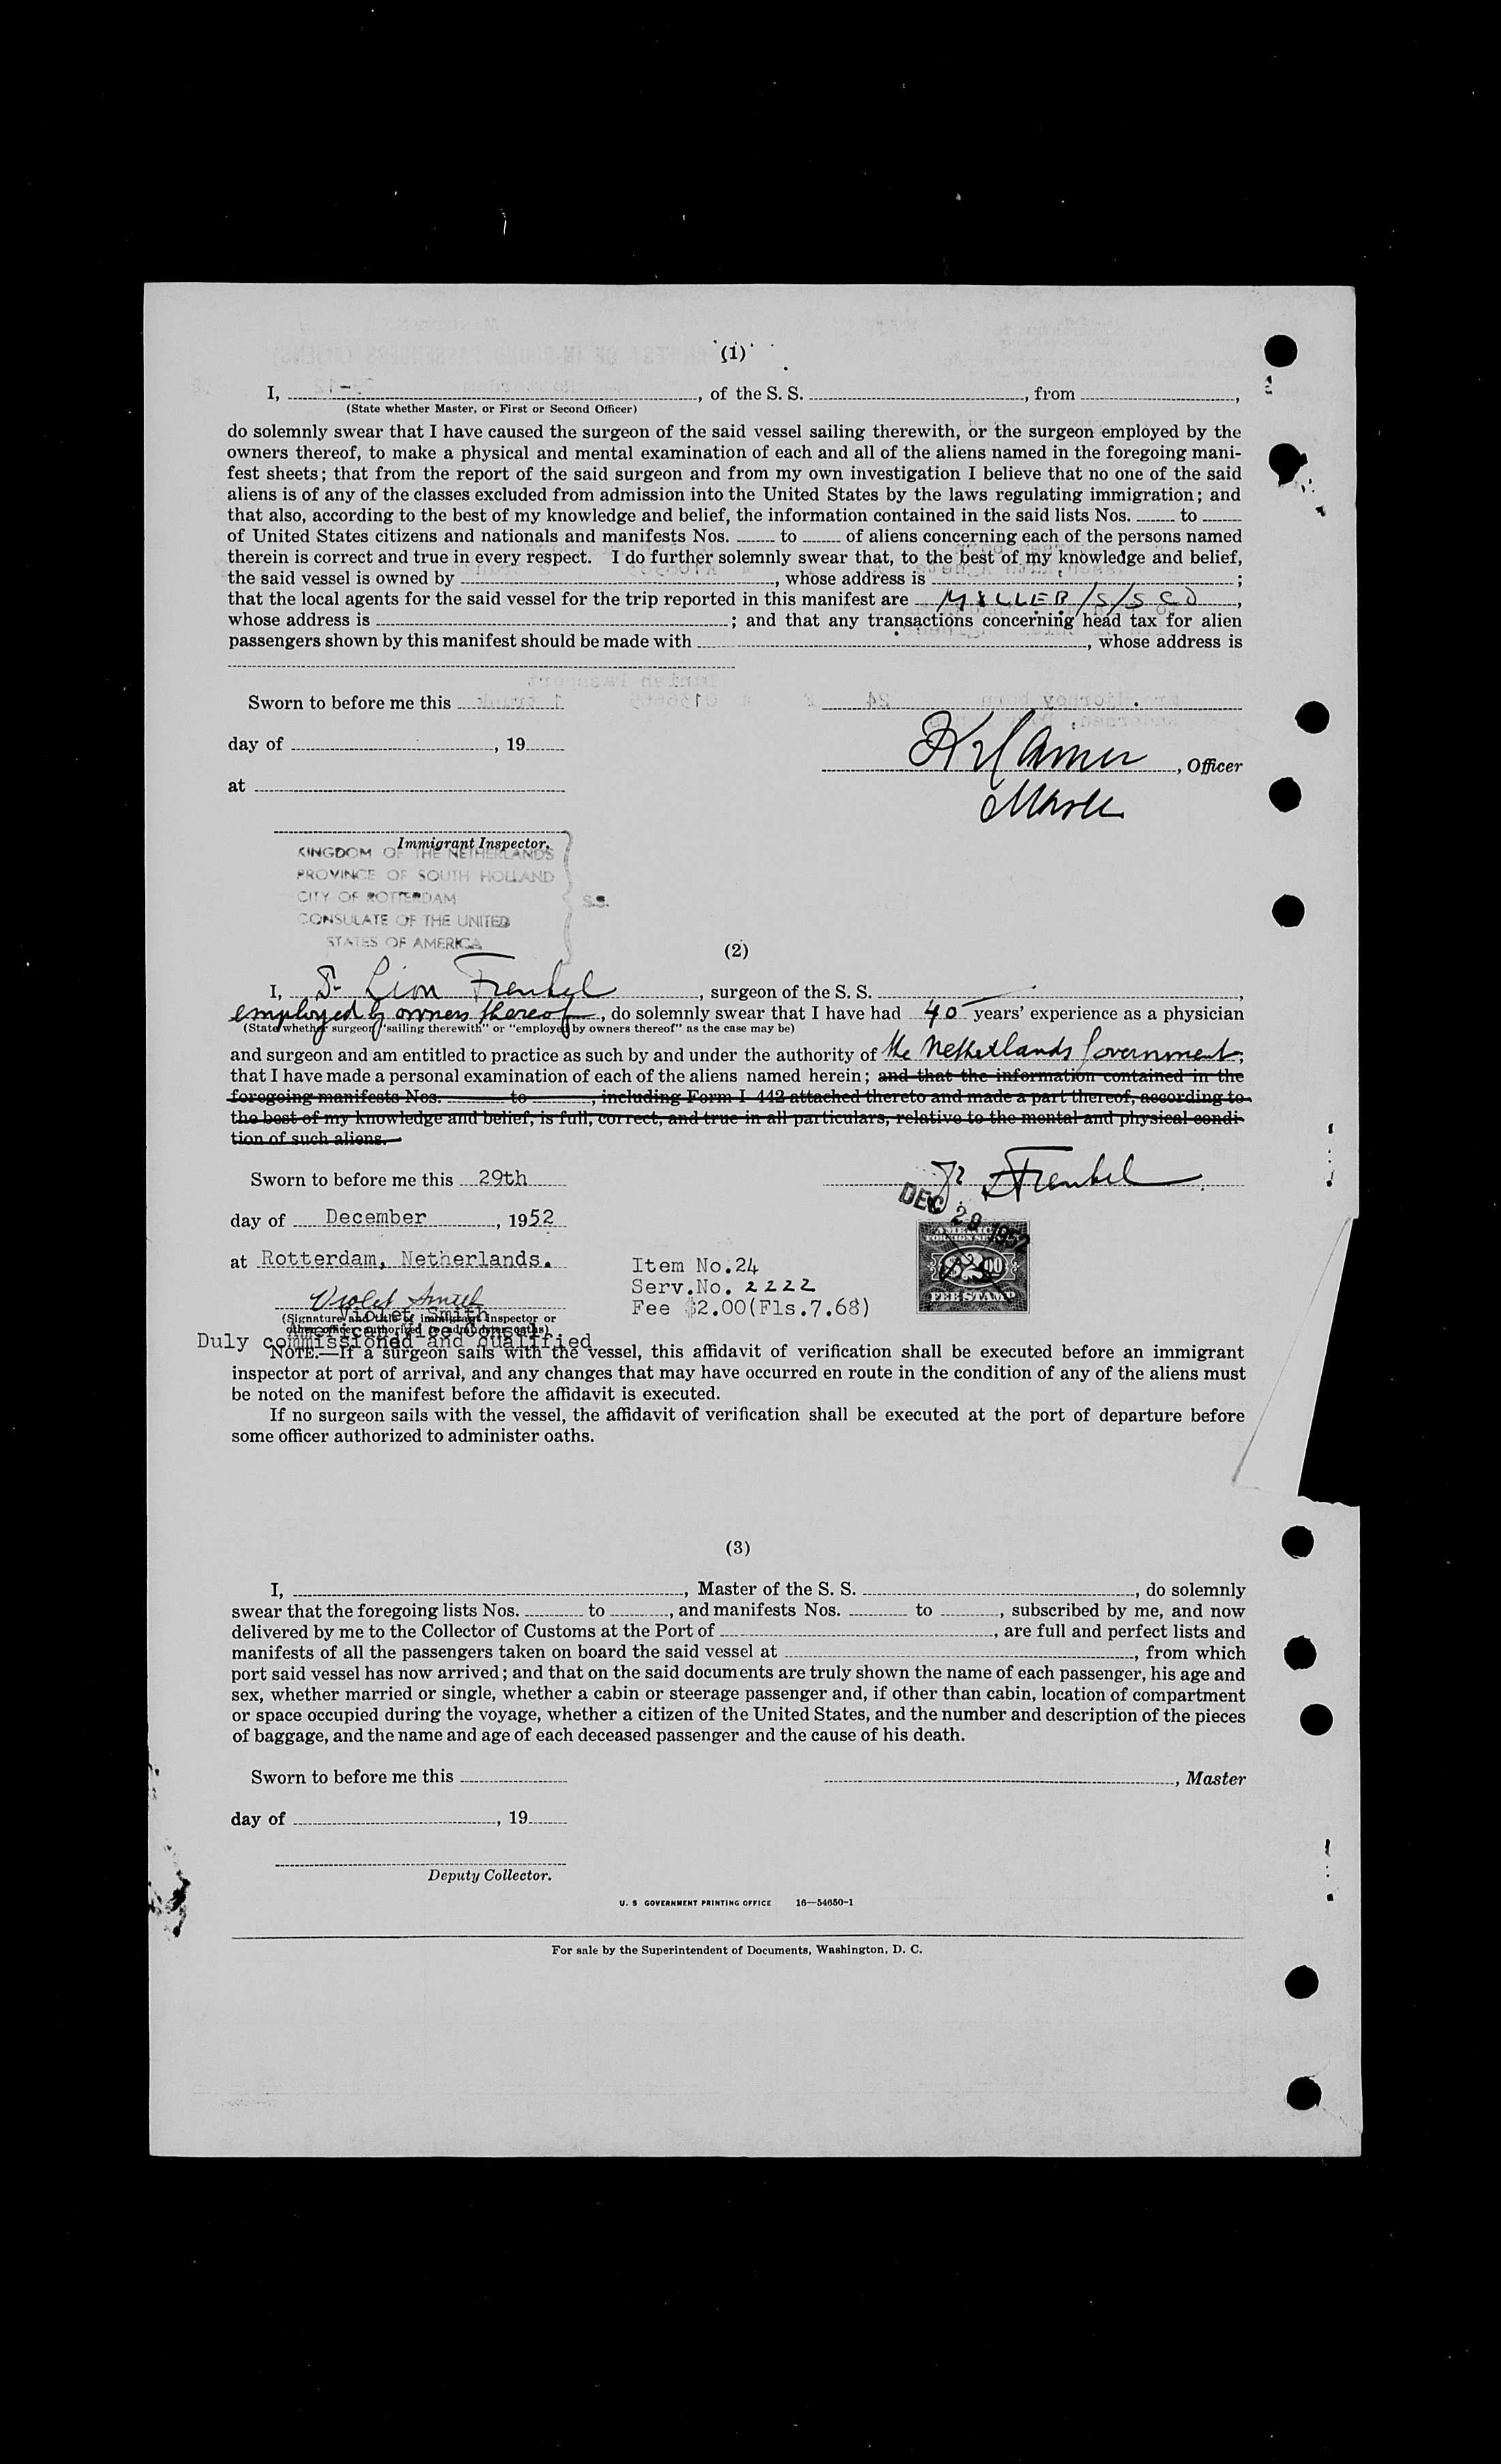 (1)
I, , of the S. S. , from ,
(State whether Master, or First or Second Officer)
do solemnly swear that I have caused the surgeon of the said vessel sailing therewith, or the surgeon employed by the
owners thereof, to make a physical and mental examination of each and all of the aliens named in the foregoing mani-
fest sheets; that from the report of the said surgeon and from my own investigation I believe that no one of the said
aliens is of any of the classes excluded from admission into the United States by the laws regulating immigration; and
that also, according to the best of my knowledge and belief, the information contained in the said lists Nos. to
of United States citizens and nationals and manifests Nos. to of aliens concerning each of the persons named
therein is correct and true in every respect. I do further solemnly swear that, to the best of my knowledge and belief,
the said vessel is owned by , whose address is ;
that the local agents for the said vessel for the trip reported in this manifest are ,
whose address is ; and that any transactions concerning head tax for alien
passengers shown by this manifest should be made with , whose address is
Sworn to before me this
day of , 19
, Officer
at
Immigrant Inspector.
KINGDOM OF THE NETHERLANDS
PROVINCE OF SOUTH HOLLAND
CITY OF ROTTERDAM
S.S.
CONSULATE OF THE UNITED
STATES OF AMERICA
(2)
I, Dr Lion Frenkel , surgeon of the S. S. ,
employed by owners thereof , do solemnly swear that I have had 40 years' experience as a physician
(State whether surgeon "sailing therewith" or "employed by owners thereof" as the case may be)
and surgeon and am entitled to practice as such by and under the authority of the Netherlands Government;
that I have made a personal examination of each of the aliens named herein; and that the information contained in the
foregoing manifests Nos. to , including Form I-442 attached thereto and made a part thereof, according to
the best of my knowledge and belief, is full, correct, and true in all particulars, relative to the mental and physical condi-
tion of such aliens.
Sworn to before me this 29th
Dr Frenkel
DEC 29 1952
day of December , 1952
AMERICAN
FOREIGN SERVICE
$2.00
FEE STAMP
at Rotterdam, Netherlands.
Item No.24
Serv.No. 2222
Fee $2.00(Fls.7.68)
Violet Smith
(Signature and title of immigrant inspector or
Violet Smith
other officer authorized to administer oaths)
American Vice Consul
Duly commissioned and qualified
NOTE.—If a surgeon sails with the vessel, this affidavit of verification shall be executed before an immigrant
inspector at port of arrival, and any changes that may have occurred en route in the condition of any of the aliens must
be noted on the manifest before the affidavit is executed.
If no surgeon sails with the vessel, the affidavit of verification shall be executed at the port of departure before
some officer authorized to administer oaths.
(3)
I, , Master of the S. S. , do solemnly
swear that the foregoing lists Nos. to , and manifests Nos. to , subscribed by me, and now
delivered by me to the Collector of Customs at the Port of , are full and perfect lists and
manifests of all the passengers taken on board the said vessel at , from which
port said vessel has now arrived; and that on the said documents are truly shown the name of each passenger, his age and
sex, whether married or single, whether a cabin or steerage passenger and, if other than cabin, location of compartment
or space occupied during the voyage, whether a citizen of the United States, and the number and description of the pieces
of baggage, and the name and age of each deceased passenger and the cause of his death.
Sworn to before me this
, Master
day of , 19
Deputy Collector.
U. S GOVERNMENT PRINTING OFFICE 16—54650-1
For sale by the Superintendent of Documents, Washington, D. C.